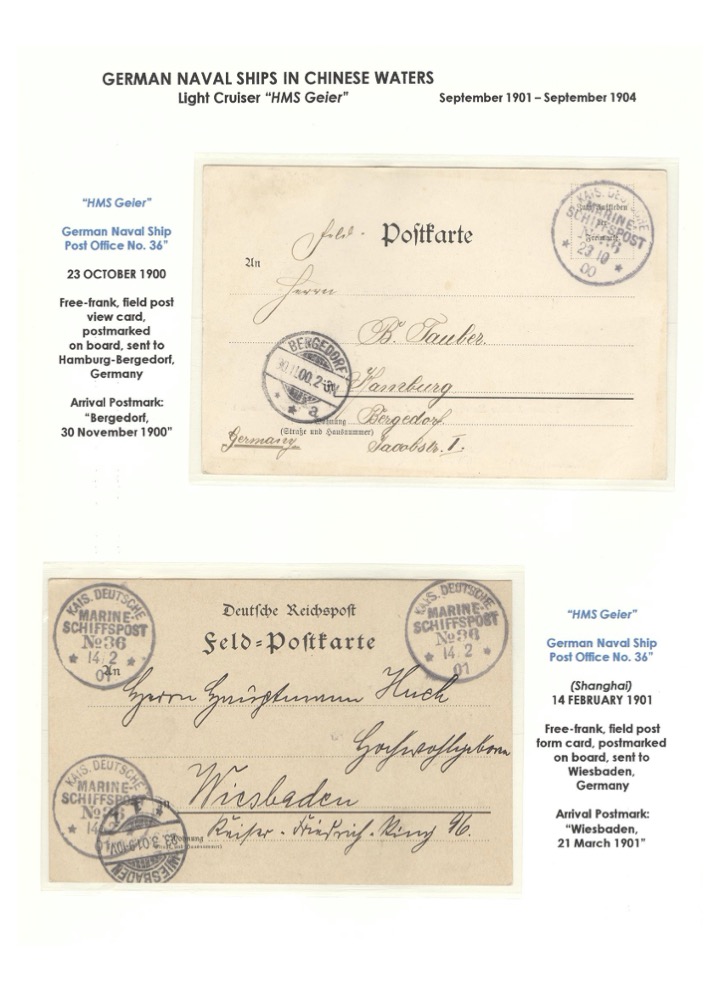 GERMAN NAVAL SHIPS IN CHINESE WATERS
Light Cruiser “HMS Geier” September 1901 – September 1904
“HMS Geier”
German Naval Ship
Post Office No. 36”
23 OCTOBER 1900
Free-frank, field post
view card,
postmarked
on board, sent to
Hamburg-Bergedorf,
Germany
Arrival Postmark:
“Bergedorf,
30 November 1900”
KAIS. DEUTSCHE
MARINE-
SCHIFFSPOST
No 36
23 10
00
Feld-Postkarte
An
Herrn
B. Tauber
BERGEDORF
30.11.00. 2-3N.
a
Hamburg
Wohnung
Bergedorf
(Straße und Hausnummer)
Germany
Jacobstr. I.
KAIS. DEUTSCHE
MARINE-
SCHIFFSPOST
No 36
14. 2
01
Deutsche Reichspost
Feld-Postkarte
KAIS. DEUTSCHE
MARINE-
SCHIFFSPOST
No 36
14. 2
01
An
Herrn Hauptmann Huch
Hochwohlgeboren
in
Wiesbaden
Wohnung
Keiser-Friedrich-Ring 96.
KAIS. DEUTSCHE
MARINE-
SCHIFFSPOST
No 36
14. 2
WIESBADEN
“HMS Geier”
German Naval Ship
Post Office No. 36”
(Shanghai)
14 FEBRUARY 1901
Free-frank, field post
form card, postmarked
on board, sent to
Wiesbaden,
Germany
Arrival Postmark:
“Wiesbaden,
21 March 1901”